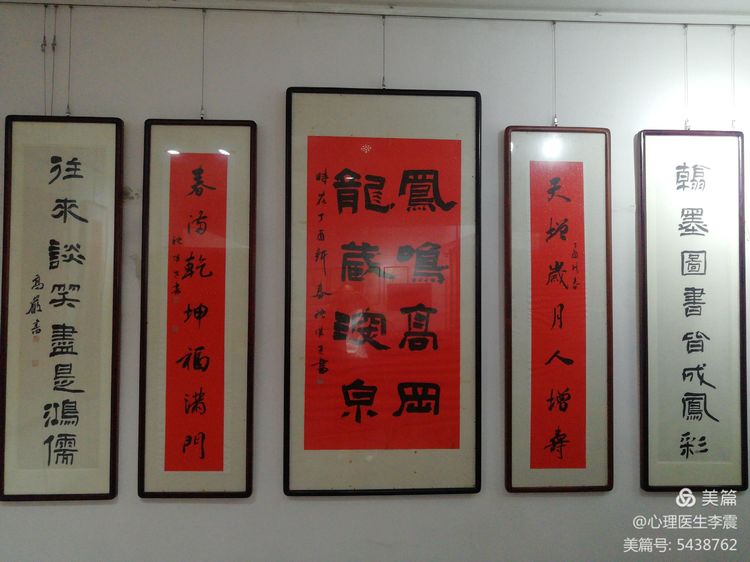 翰墨圖書皆成鳳彩
天增歲月人增壽
丁酉新春
鳳鳴高岡
龍藏深泉
時在丁酉新春
春满乾坤福滿門
往來談笑盡是鴻儒
高嚴書
美篇
@心理医生李震
美篇号: 5438762